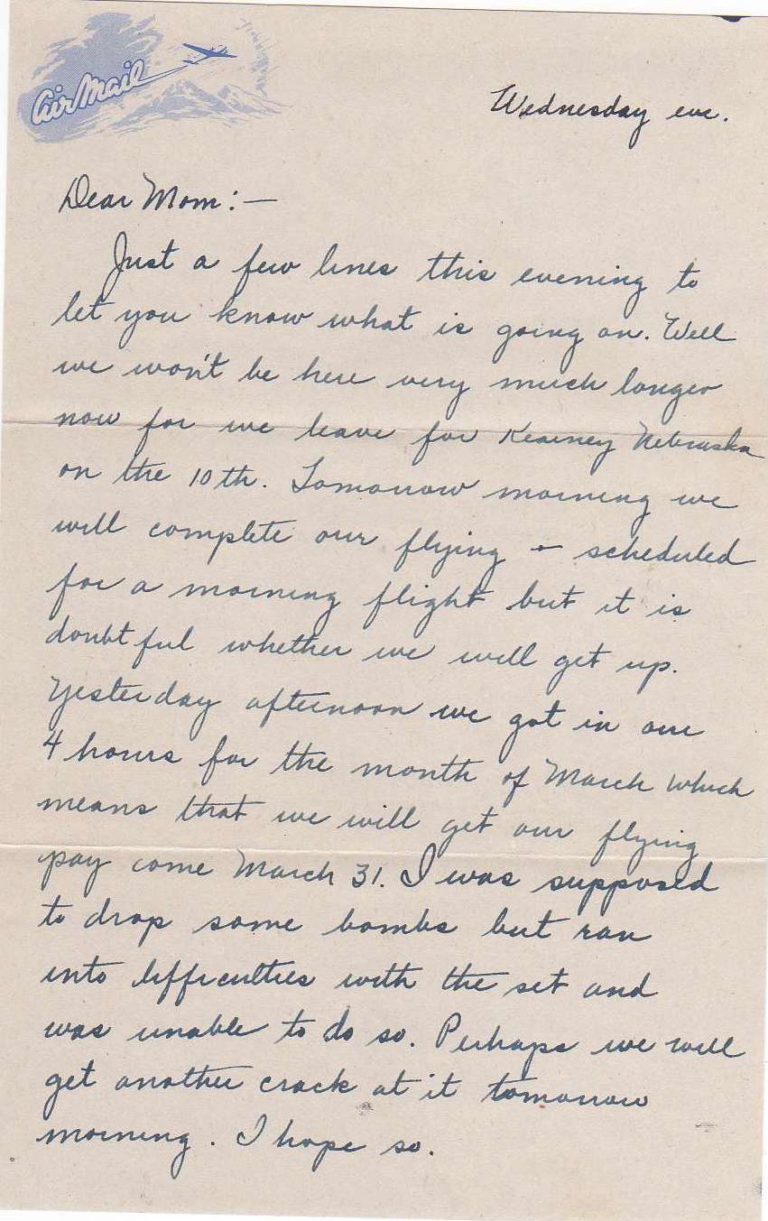 Air Mail
Wednesday eve.
Dear Mom:—
Just a few lines this evening to
let you know what is going on. Well
we won't be here very much longer
now for we leave for Kearney Nebraska
on the 10th. Tomorrow morning we
will complete our flying - scheduled
for a morning flight but it is
doubtful whether we will get up.
Yesterday afternoon we got in our
4 hours for the month of March which
means that we will get our flying
pay come March 31. I was supposed
to drop some bombs but ran
into difficulties with the set and
was unable to do so. Perhaps we will
get another crack at it tomorrow
morning. I hope so.